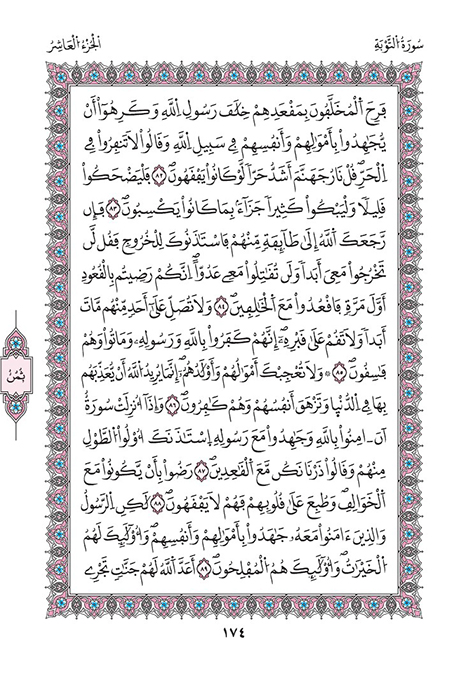 سُورَةُ التَّوْبَةِ
الْجُزْءُ الْعَاشِرُ
فَرِحَ الْمُخَلَّفُونَ بِمَقْعَدِهِمْ خِلَٰفَ رَسُولِ اِللَّهِ وَكَرِهُوٓاْ أَنْ
يُّجَٰهِدُواْ بِأَمْوَٰلِهِمْ وَأَنفُسِهِمْ فِے سَبِيلِ اِللَّهِ وَقَالُواْ لَا تَنفِرُواْ فِے
اِلْحَرِّۖ قُلْ نَارُ جَهَنَّمَ أَشَدُّ حَرّاٗ لَّوْ كَانُواْ يَفْقَهُونَۖ ٨٢ فَلْيَضْحَكُواْ
قَلِيلاٗ وَلْيَبْكُواْ كَثِيراٗ جَزَآءَۢ بِمَا كَانُواْ يَكْسِبُونَۖ ٨٣ فَإِن
رَّجَعَكَ اَللَّهُ إِلَىٰ طَآئِفَةٖ مِّنْهُمْ فَاسْتَٰذَنُوكَ لِلْخُرُوجِ فَقُل لَّن
تَخْرُجُواْ مَعِيَ أَبَداٗ وَلَن تُقَٰتِلُواْ مَعِے عَدُوّاًۖ اِنَّكُمْ رَضِيتُم بِالْقُعُودِ
أَوَّلَ مَرَّةٖ فَاقْعُدُواْ مَعَ اَلْخَٰلِفِينَۖ ٨٤ وَلَا تُصَلِّ عَلَىٰٓ أَحَدٖ مِّنْهُم مَّاتَ
أَبَداٗ وَلَا تَقُمْ عَلَىٰ قَبْرِهِۦٓۖ إِنَّهُمْ كَفَرُواْ بِاللَّهِ وَرَسُولِهِۦ وَمَاتُواْ وَهُمْ
فَٰسِقُونَۖ ٨٥ ۞ وَلَا تُعْجِبْكَ أَمْوَٰلُهُمْ وَأَوْلَٰدُهُمُۥٓۖ إِنَّمَا يُرِيدُ اُللَّهُ أَنْ يُّعَذِّبَهُم
بِهَا فِے اِلدُّنْيَا وَتَزْهَقَ أَنفُسُهُمْ وَهُمْ كَٰفِرُونَۖ ٨٦ وَإِذَآ أُنزِلَتْ سُورَةٌ
اَنَ اٰمِنُواْ بِاللَّهِ وَجَٰهِدُواْ مَعَ رَسُولِهِ اِسْتَٰذَنَكَ أُوْلُواْ اُلطَّوْلِ
مِنْهُمْ وَقَالُواْ ذَرْنَا نَكُن مَّعَ اَلْقَٰعِدِينَۖ ٨٧ رَضُواْ بِأَنْ يَّكُونُواْ مَعَ
اَلْخَوَالِفِۖ وَطُبِعَ عَلَىٰ قُلُوبِهِمْ فَهُمْ لَا يَفْقَهُونَۖ ٨٨ لَٰكِنِ اِلرَّسُولُ
وَالذِينَ ءَامَنُواْ مَعَهُۥ جَٰهَدُواْ بِأَمْوَٰلِهِمْ وَأَنفُسِهِمْۖ وَأُوْلَٰٓئِكَ لَهُمُ
اُلْخَيْرَٰتُۖ وَأُوْلَٰٓئِكَ هُمُ اُلْمُفْلِحُونَۖ ٨٩ أَعَدَّ اَللَّهُ لَهُمْ جَنَّٰتٖ تَجْرِے
ثُمُنٌ
١٧٤